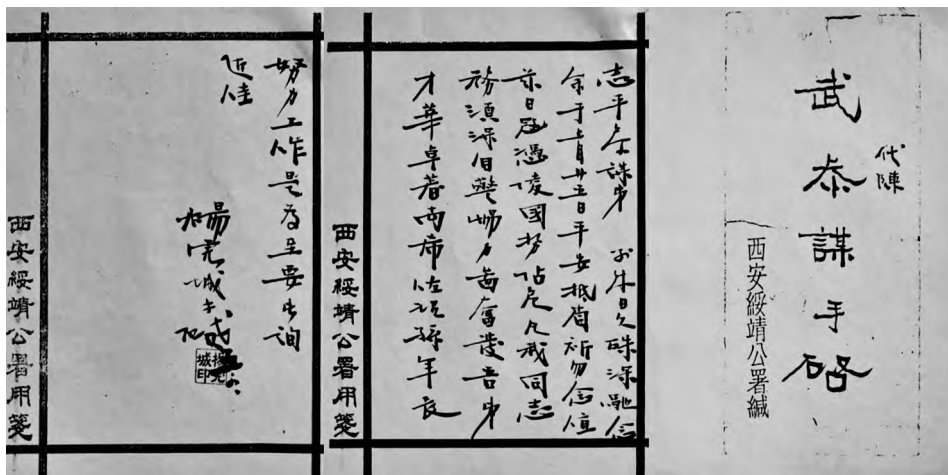 武參謀手啟
代陳
西安綏靖公署緘
志平參謀弟 日久殊深馳念
余于 月廿五日平安抵省祈勿念值
茲日寇憑凌國勢阽危凡我同志
務須深自警惕力圖奮發吾弟
才華卓著尚希佐 年長
西安綏靖公署用箋
努力工作是為至要此詢
近佳
楊虎城
楊虎城印
西安綏靖公署用箋